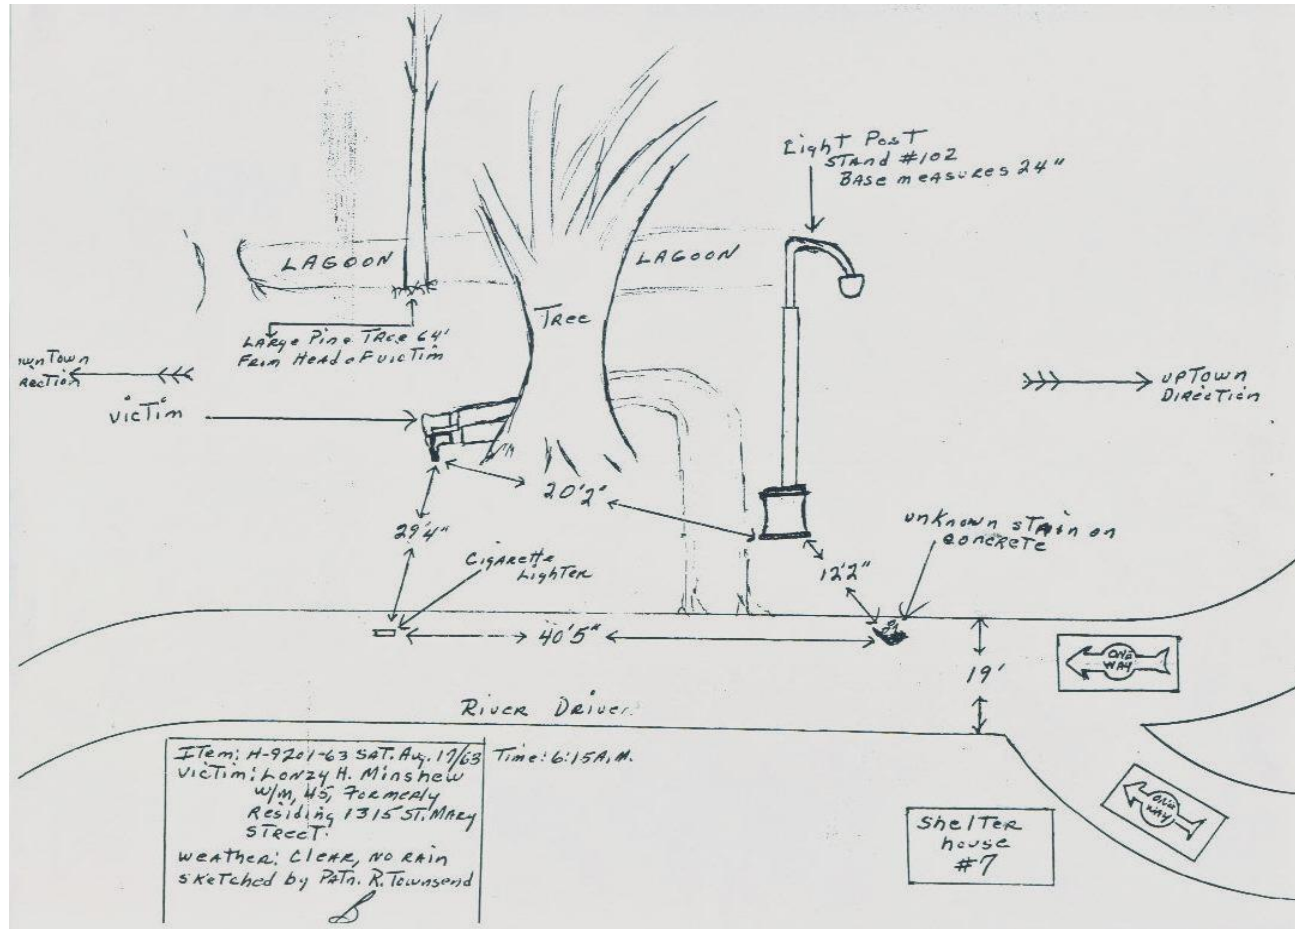 Light Post
Stand #102
Base measures 24"
LAGOON
LAGOON
Tree
Large Pine Tree 64'
From Head of victim
wnTown
rection
UPTOWN
Direction
Victim
20'2"
29'4"
unknown stain on
concrete
Cigarette
Lighter
12'2"
40'5"
19'
ONE
WAY
River Drive
Item: H-9201-63 SAT. Aug. 17/63 Time: 6:15 A.M.
Victim: Lonzy H. Minshew
W/M, 45, Formerly
Residing 1315 ST. Mary
Street.
Weather: Clear, NO RAIN
Sketched by Patn. R. Townsend
ONE
WAY
Shelter
house
#7